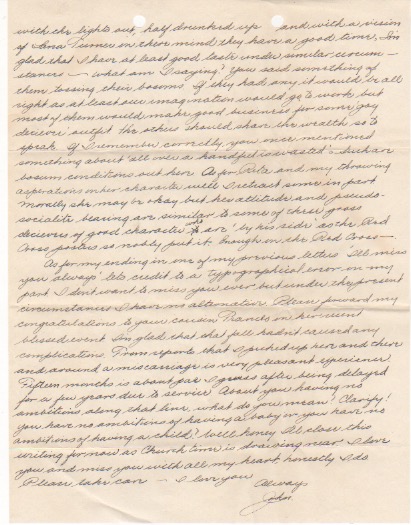 with the lights out, half drunked up and with a vision
of Lana Turner in there mind they have a good time. Im
glad that I have at least good taste under similar circum-
stances — what am I saying! You said something of
them losing their bosoms. If they had any it would be all
right as at least our imagination would go to work but
most of them would make good business for some gay
deceiver outfit the others should share the wealth so to
speak. If I remember correctly, you once mentioned
something about "all over a handful is wasted" - such are
bosum conditions out here. As for Rita and my throwing
aspirations on her character well I retract same in part
Morally she may be okay but her attitude and pseudo-
socialite bearing are similar to some of these gross
deceivers of good character as are "by his side" as the Red
Cross posters so nobly put it. Enough on the Red Cross —
As for my ending in one of my previous letters "I'll miss
you always" lets credit to a typographical error on my
part I don't want to miss you ever but under the present
circumstances I have no alternative. Please forward my
congratulations to your cousin on her recent
blessed event. Im glad that that fall hadn't caused any
complications. From reports that I picked up here and there
and around a miscarriage is very pleasant experience
Fifteen months is about par I guess after being delayed
for a few years due to service. About you having no
ambitions along that line, what do you mean! Clarify!
you have no ambitions of having a baby or you have no
ambitions of having a child? Well honey Ill close this
writing for now as Church time is drawing near. I love
you and miss you with all my heart honestly I do
Please take care — I love you
Always
John